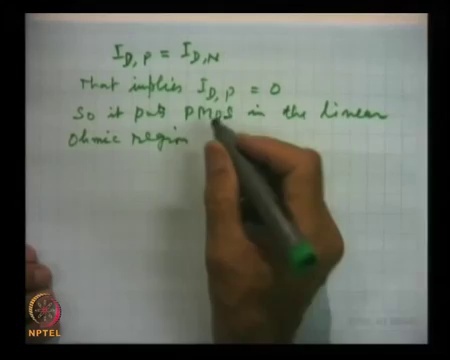 I_D,P = I_D,N
That implies I_D,P = 0
So it puts PMOS in the linear
Ohmic region
NPTEL